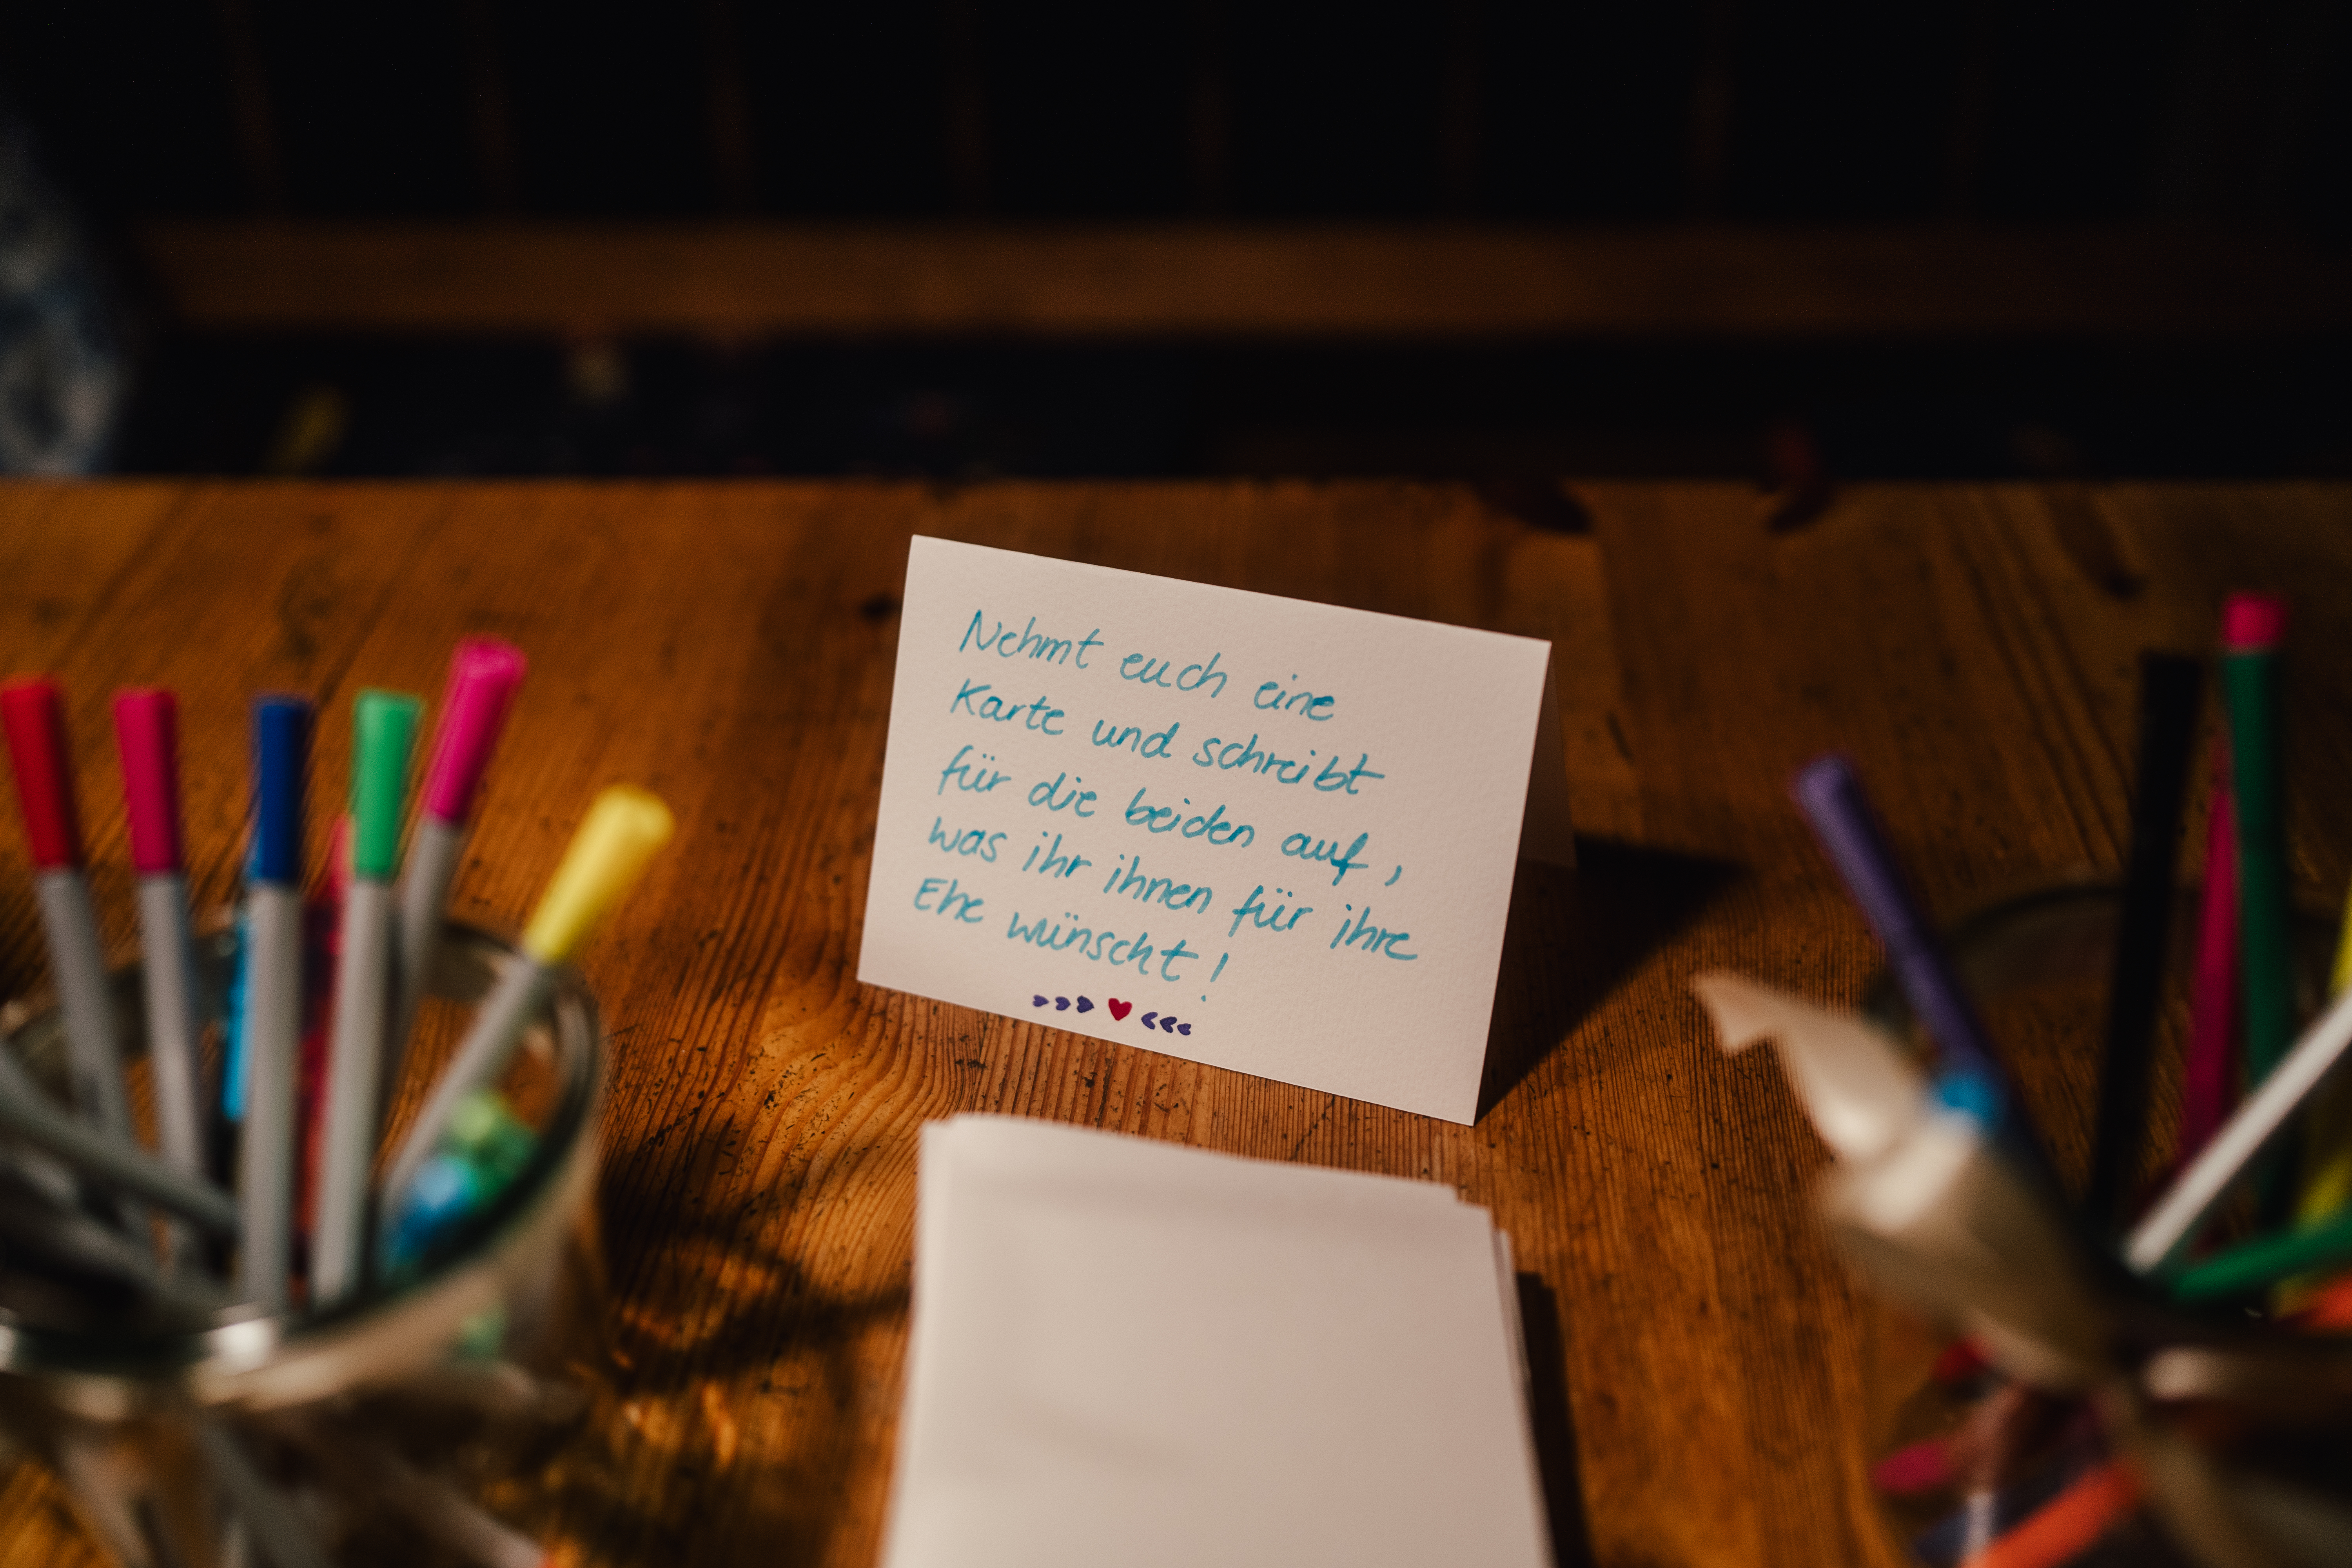 Nehmt euch eine
Karte und schreibt
für die beiden auf,
was ihr ihnen für ihre
Ehe wünscht!